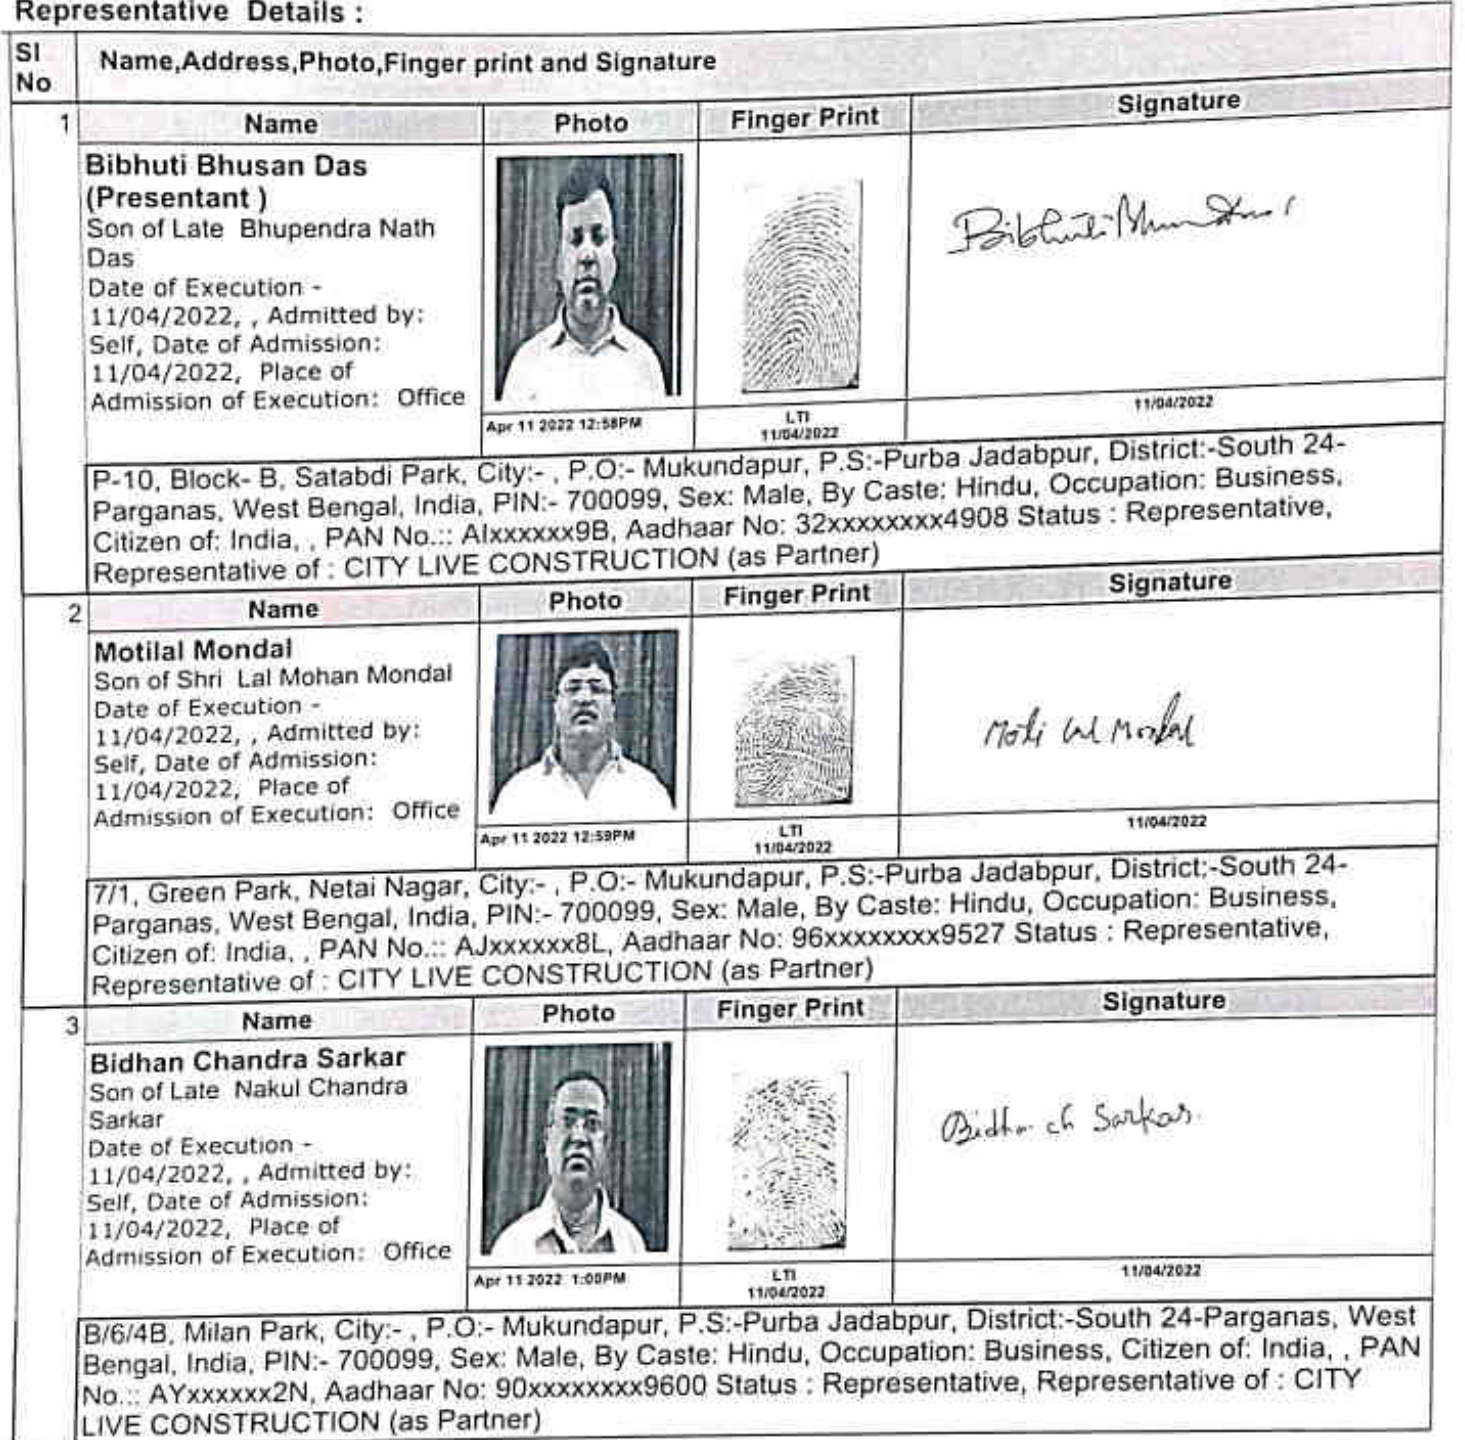 Representative Details :
Sl No
Name,Address,Photo,Finger print and Signature
1
Name
Photo
Finger Print
Signature
Bibhuti Bhusan Das
(Presentant )
Son of Late Bhupendra Nath
Das
Date of Execution -
11/04/2022, , Admitted by:
Self, Date of Admission:
11/04/2022, Place of
Admission of Execution: Office
Apr 11 2022 12:58PM
LTI
11/04/2022
Bibhuti Bhusan Das
11/04/2022
P-10, Block- B, Satabdi Park, City:- , P.O:- Mukundapur, P.S:-Purba Jadabpur, District:-South 24-
Parganas, West Bengal, India, PIN:- 700099, Sex: Male, By Caste: Hindu, Occupation: Business,
Citizen of: India, , PAN No.:: AIxxxxxx9B, Aadhaar No: 32xxxxxxxx4908 Status : Representative,
Representative of : CITY LIVE CONSTRUCTION (as Partner)
2
Name
Photo
Finger Print
Signature
Motilal Mondal
Son of Shri Lal Mohan Mondal
Date of Execution -
11/04/2022, , Admitted by:
Self, Date of Admission:
11/04/2022, Place of
Admission of Execution: Office
Apr 11 2022 12:59PM
LTI
11/04/2022
Moti Lal Mondal
11/04/2022
7/1, Green Park, Netai Nagar, City:- , P.O:- Mukundapur, P.S:-Purba Jadabpur, District:-South 24-
Parganas, West Bengal, India, PIN:- 700099, Sex: Male, By Caste: Hindu, Occupation: Business,
Citizen of: India, , PAN No.:: AJxxxxxx8L, Aadhaar No: 96xxxxxxxx9527 Status : Representative,
Representative of : CITY LIVE CONSTRUCTION (as Partner)
3
Name
Photo
Finger Print
Signature
Bidhan Chandra Sarkar
Son of Late Nakul Chandra
Sarkar
Date of Execution -
11/04/2022, , Admitted by:
Self, Date of Admission:
11/04/2022, Place of
Admission of Execution: Office
Apr 11 2022 1:00PM
LTI
11/04/2022
Bidhan ch Sarkar.
11/04/2022
B/6/4B, Milan Park, City:- , P.O:- Mukundapur, P.S:-Purba Jadabpur, District:-South 24-Parganas, West
Bengal, India, PIN:- 700099, Sex: Male, By Caste: Hindu, Occupation: Business, Citizen of: India, , PAN
No.:: AYxxxxxx2N, Aadhaar No: 90xxxxxxxx9600 Status : Representative, Representative of : CITY
LIVE CONSTRUCTION (as Partner)